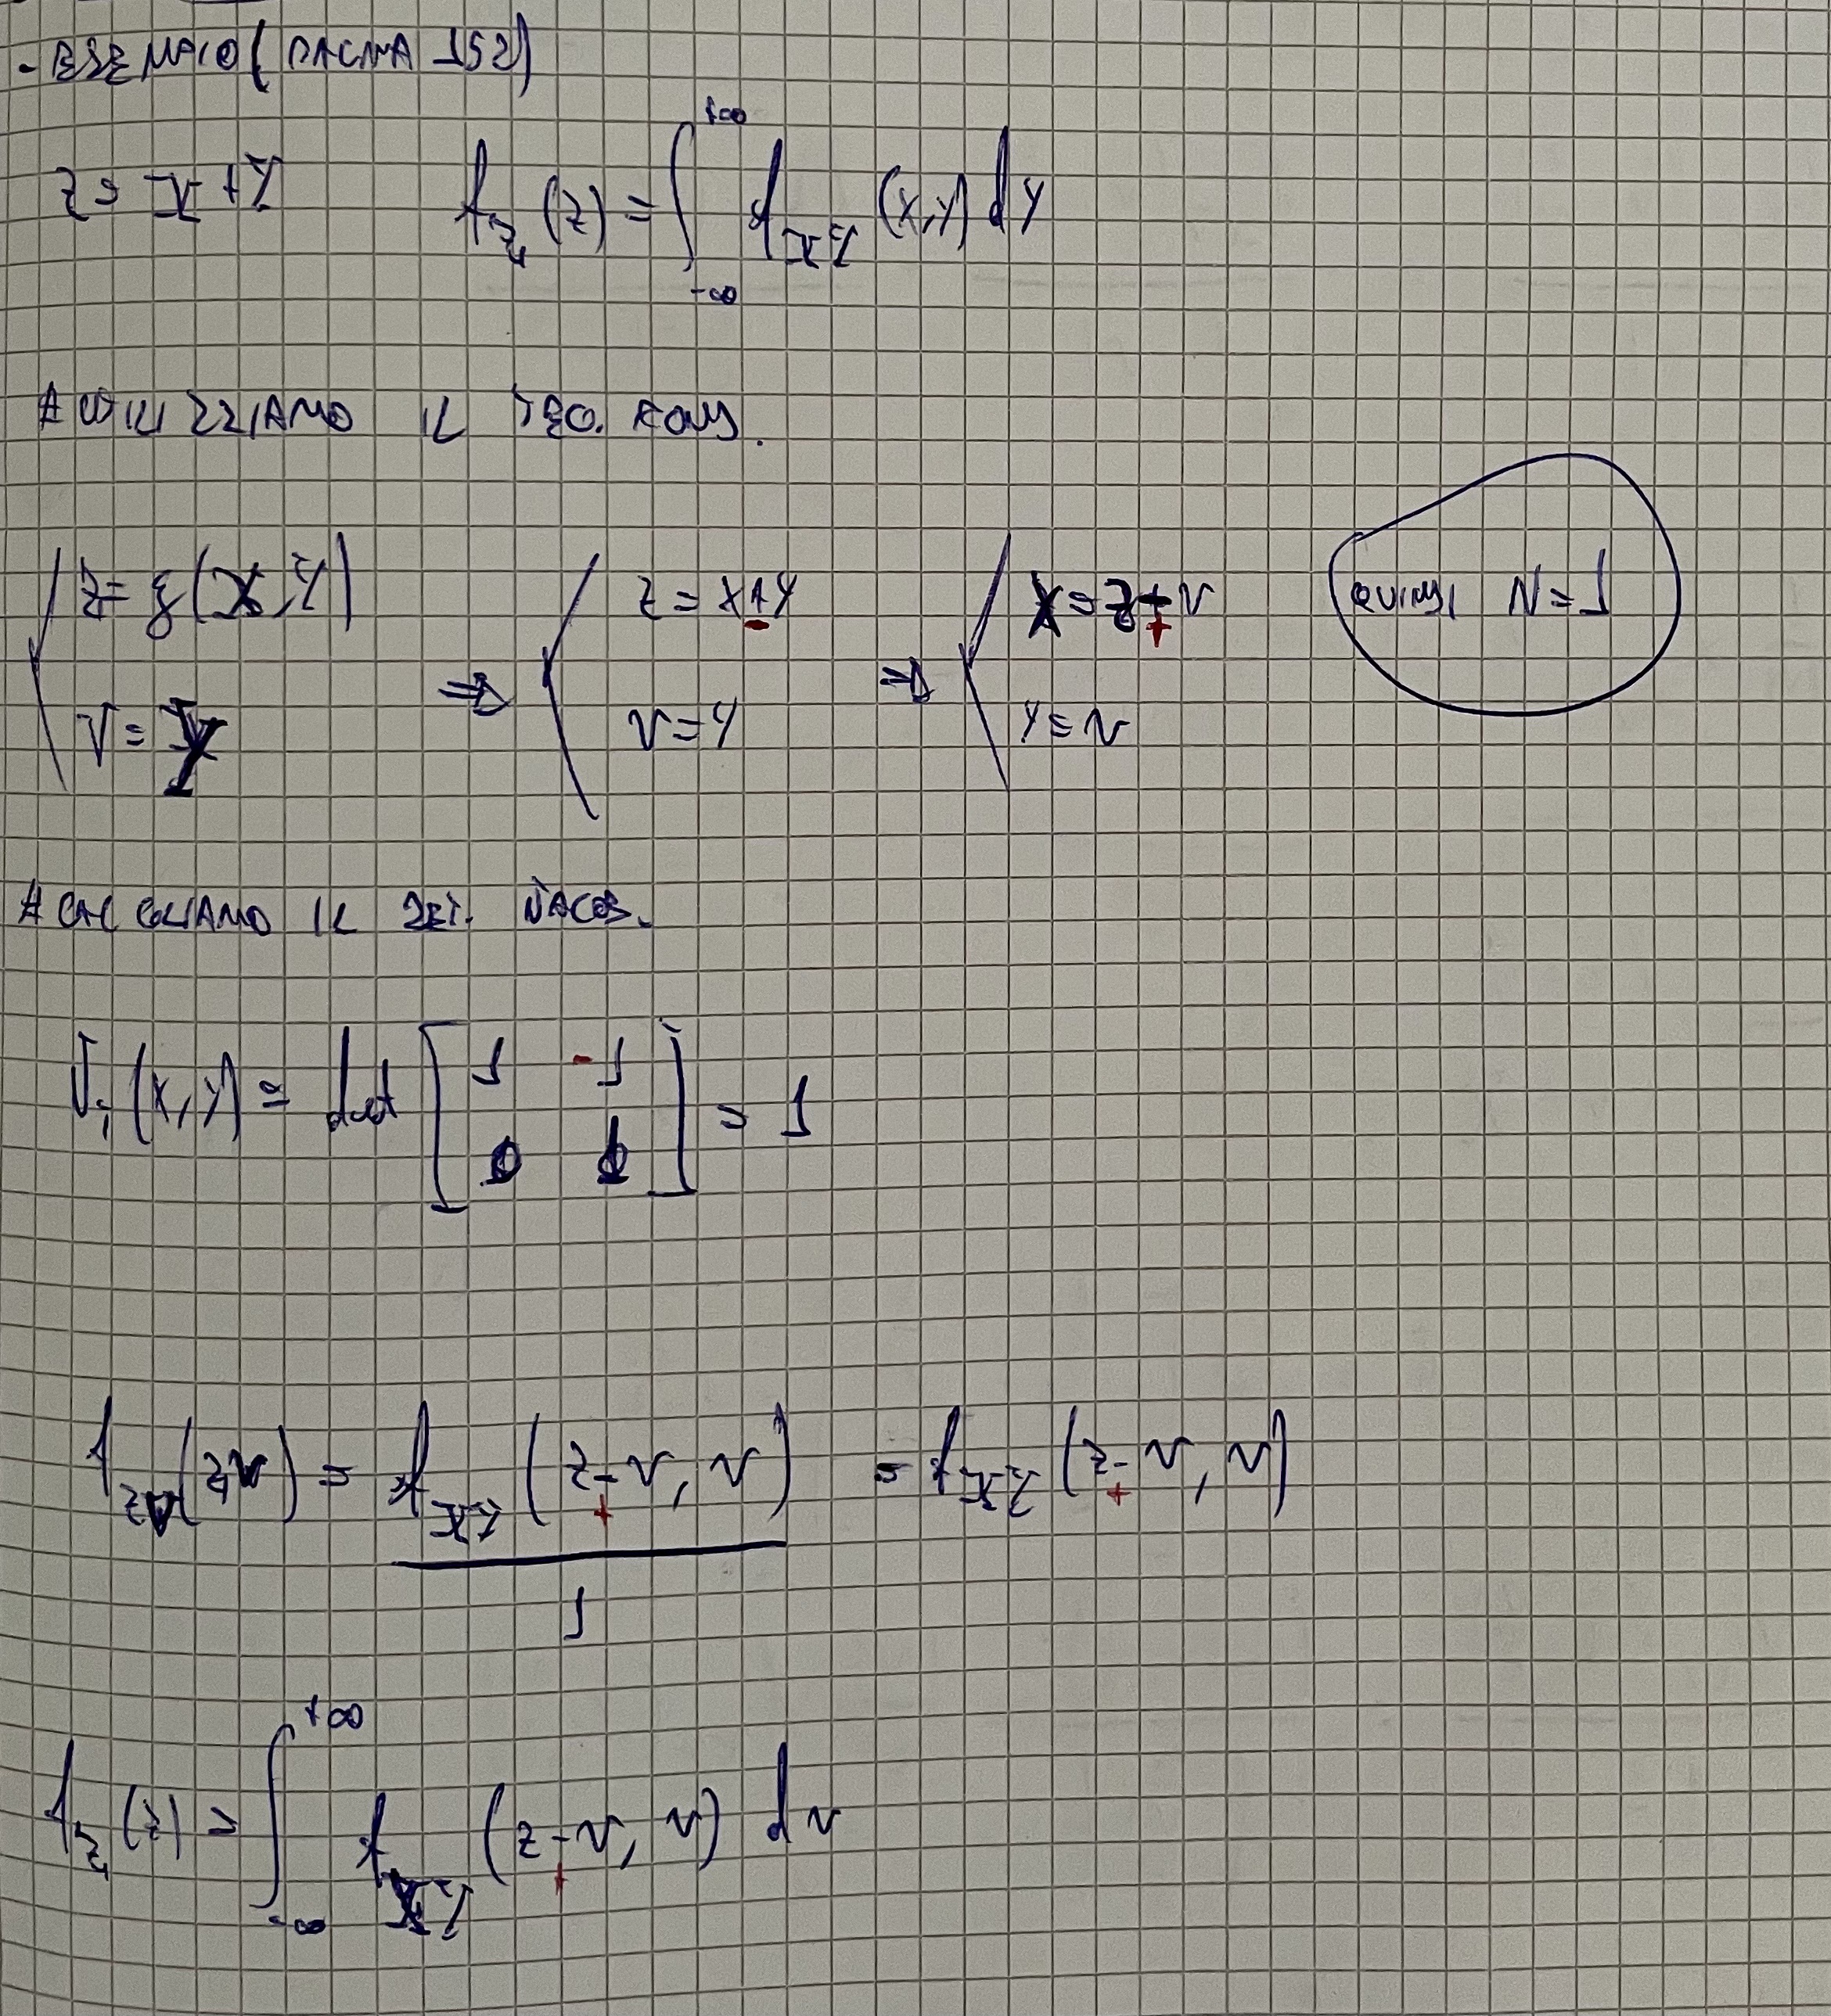 - ESEMPIO (PAGINA 152)
Z = X + Y f_Z (z) = ∫_{-∞}^{+∞} f_{XY} (x,y) dy
# UTILIZZIAMO IL TEO. FOND.
{ Z = g(X,Y) ⇒ { z = x + y ⇒ { x = z - v QUINDI N = 1
- +
V = Y v = y y = v
# CALCOLIAMO IL DET. JACOB.
J_i (x,y) = det [ 1 - 1 ; 0 1 ] = 1
f_{ZV} (z,v) = f_{XY} (z - v, v) / 1 = f_{XY} (z - v, v)
+ +
f_Z (z) = ∫_{-∞}^{+∞} f_{XY} (z - v, v) dv
+